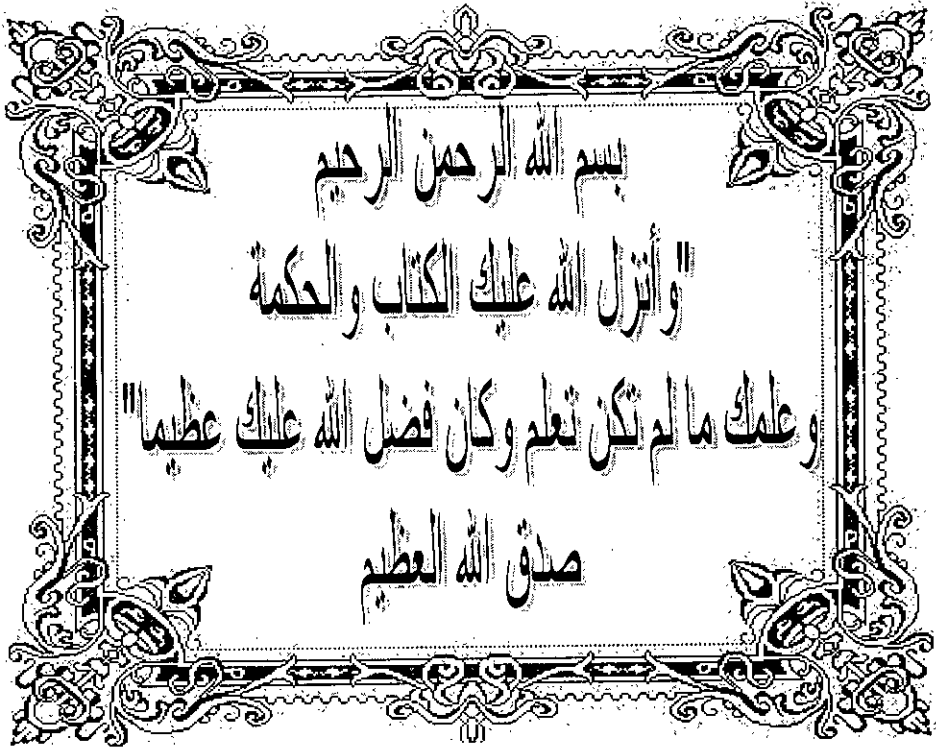 بسم الله الرحمن الرحيم
"وأنزل الله عليك الكتاب والحكمة
وعلمك ما لم تكن تعلم وكان فضل الله عليك عظيما"
صدق الله العظيم